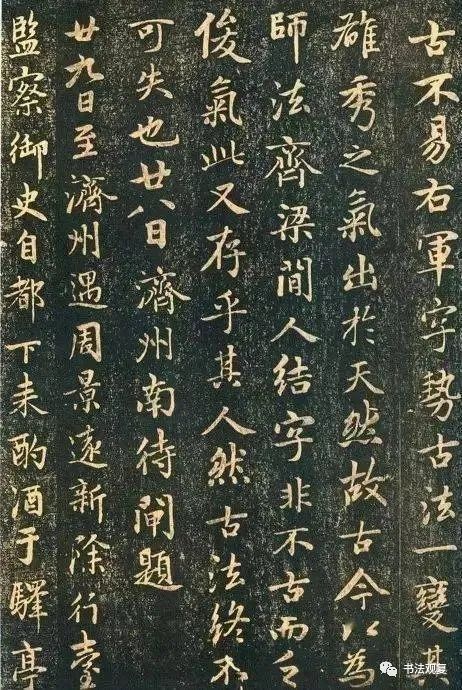 古不易右軍字勢古法一變其
雄秀之氣出於天然故古今以為
師法齊梁間人結字非不古而乏
俊氣此又存乎其人然古法終不
可失也廿八日濟州南待閘題
廿九日至濟州遇周景遠新除行臺
監察御史自都下来酌酒于驛亭
书法观复